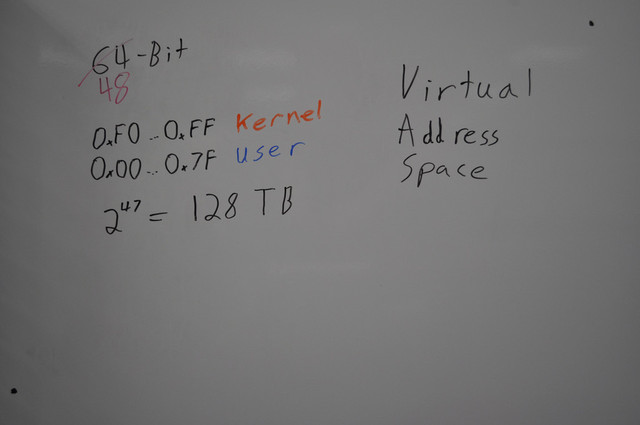 64-Bit
48
0xF0...0xFF Kernel
0x00...0x7F user
2⁴⁷ = 128 TB
Virtual
Address
Space